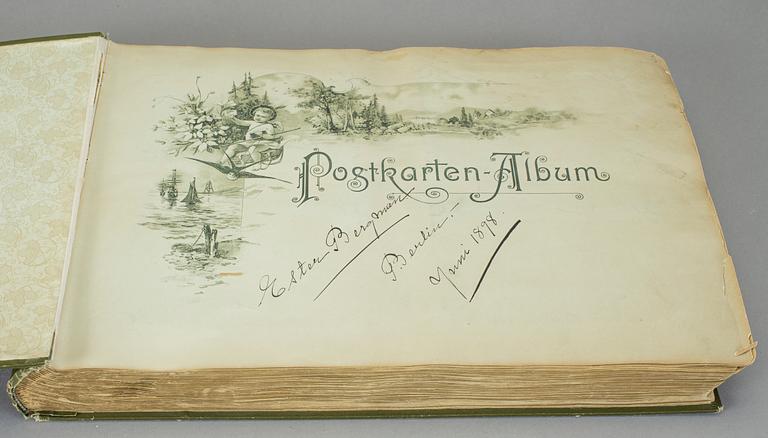 Postkarten-Album
Ester Bergman
Berlin.
Juni 1898.